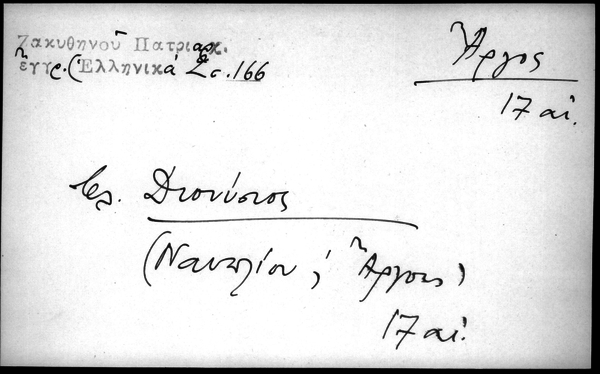 Ζακυθηνοῦ Πατριαρχ.
ἔγγρ. (Ἑλληνικά 2 σ. 166
Ἄργος
17 αἰ.
Διονύσιος
(Ναυπλίου ; Ἄργους)
17 αἰ.